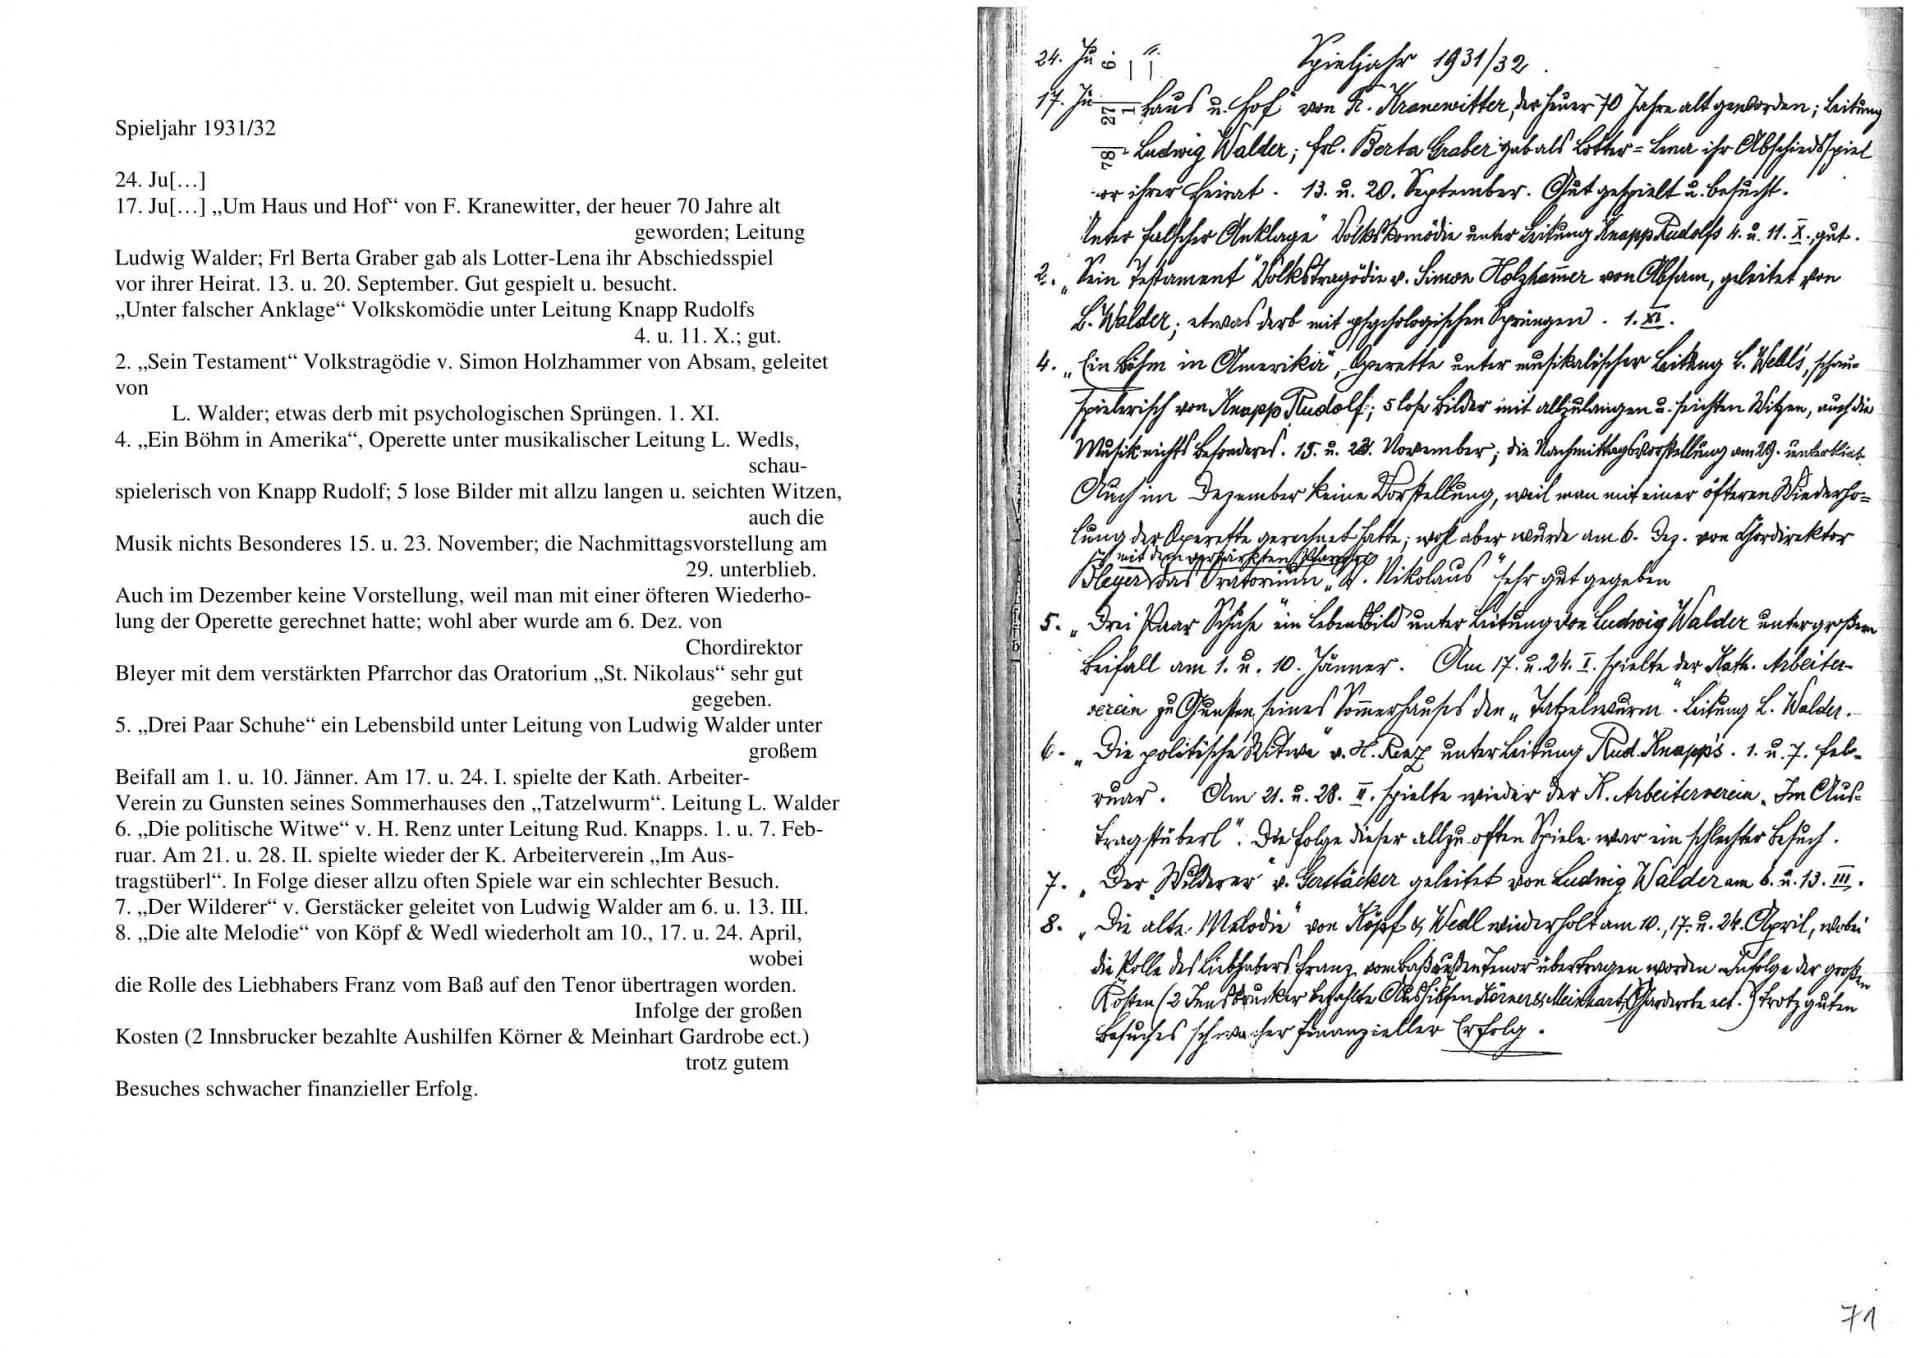 Spieljahr 1931/32
24. Ju[…]
17. Ju[…] „Um Haus und Hof“ von F. Kranewitter, der heuer 70 Jahre alt
geworden; Leitung
Ludwig Walder; Frl Berta Graber gab als Lotter-Lena ihr Abschiedsspiel
vor ihrer Heirat. 13. u. 20. September. Gut gespielt u. besucht.
„Unter falscher Anklage“ Volkskomödie unter Leitung Knapp Rudolfs
4. u. 11. X.; gut.
2. „Sein Testament“ Volkstragödie v. Simon Holzhammer von Absam, geleitet
von
L. Walder; etwas derb mit psychologischen Sprüngen. 1. XI.
4. „Ein Böhm in Amerika“, Operette unter musikalischer Leitung L. Wedls,
schau-
spielerisch von Knapp Rudolf; 5 lose Bilder mit allzu langen u. seichten Witzen,
auch die
Musik nichts Besonderes 15. u. 23. November; die Nachmittagsvorstellung am
29. unterblieb.
Auch im Dezember keine Vorstellung, weil man mit einer öfteren Wiederho-
lung der Operette gerechnet hatte; wohl aber wurde am 6. Dez. von
Chordirektor
Bleyer mit dem verstärkten Pfarrchor das Oratorium „St. Nikolaus“ sehr gut
gegeben.
5. „Drei Paar Schuhe“ ein Lebensbild unter Leitung von Ludwig Walder unter
großem
Beifall am 1. u. 10. Jänner. Am 17. u. 24. I. spielte der Kath. Arbeiter-
Verein zu Gunsten seines Sommerhauses den „Tatzelwurm“. Leitung L. Walder
6. „Die politische Witwe“ v. H. Renz unter Leitung Rud. Knapps. 1. u. 7. Feb-
ruar. Am 21. u. 28. II. spielte wieder der K. Arbeiterverein „Im Aus-
tragstüberl“. In Folge dieser allzu often Spiele war ein schlechter Besuch.
7. „Der Wilderer“ v. Gerstäcker geleitet von Ludwig Walder am 6. u. 13. III.
8. „Die alte Melodie“ von Köpf & Wedl wiederholt am 10., 17. u. 24. April,
wobei
die Rolle des Liebhabers Franz vom Baß auf den Tenor übertragen worden.
Infolge der großen
Kosten (2 Innsbrucker bezahlte Aushilfen Körner & Meinhart Gardrobe ect.)
trotz gutem
Besuches schwacher finanzieller Erfolg.
Spieljahr 1931/32.
24. Ju 6
17. Ju 27 1 Haus u. Hof“ von F. Kranewitter, der heuer 70 Jahre alt geworden; Leitung
78 Ludwig Walder; Frl. Berta Graber gab als Lotter=Lena ihr Abschiedsspiel
or ihrer Heirat. 13. u. 20. September. Gut gespielt u. besucht.
Unter falscher Anklage“ Volkskomödie unter Leitung Knapp Rudolfs 4. u. 11. X., gut.
2. „Sein Testament“ Volkstragödie v. Simon Holzham̅er von Absam, geleitet von
L. Walder; etwas derb mit psychologischen Sprüngen. 1. XI.
4. „Ein Böhm in Amerika“, Operette unter musikalischer Leitung L. Wedls, schau=
spielerisch von Knapp Rudolf; 5 lose Bilder mit allzulangen u. seichten Witzen, auch die
Musik nichts Besonderes. 15. u. 23. November; die Nachmittagsvorstellung am 29. unterblieb.
Auch im Dezember keine Vorstellung, weil man mit einer öfteren Wiederho=
lung der Operette gerechnet hatte; wohl aber wurde am 6. Dez. von Chordirektor
mit dem verstärkten Pfarrchor
Bleyer das Oratorium „St. Nikolaus“ sehr gut gegeben
5. „Drei Paar Schuhe“ ein Lebensbild unter Leitung von Ludwig Walder unter großem
Beifall am 1. u. 10. Jänner. Am 17. u. 24. I. spielte der Kath. Arbeiter-
verein zu Gunsten seines Som̅erhauses den „Tatzelwurm“. Leitung L. Walder.
6. „Die politische Witwe“ v. H. Renz unter Leitung Rud. Knapp's. 1. u. 7. Feb=
ruar. Am 21. u. 28. II. spielte wieder der K. Arbeiterverein „Im Aus=
tragstüberl“. Die Folge dieser allzu often Spiele war ein schlechter Besuch.
7. „Der Wilderer“ v. Gerstäcker geleitet von Ludwig Walder am 6. u. 13. III.
8. „Die alte Melodie“ von Köpf & Wedl wiederholt am 10., 17. u. 24. April, wobei
die Rolle des Liebhabers Franz vom Baß auf den Tenor übertragen worden. Infolge der großen
Kosten (2 Innsbrucker bezahlte Aushilfen Körner & Meinhart, Garderobe ect.) trotz guten
Besuches schwacher finanzieller Erfolg.
71